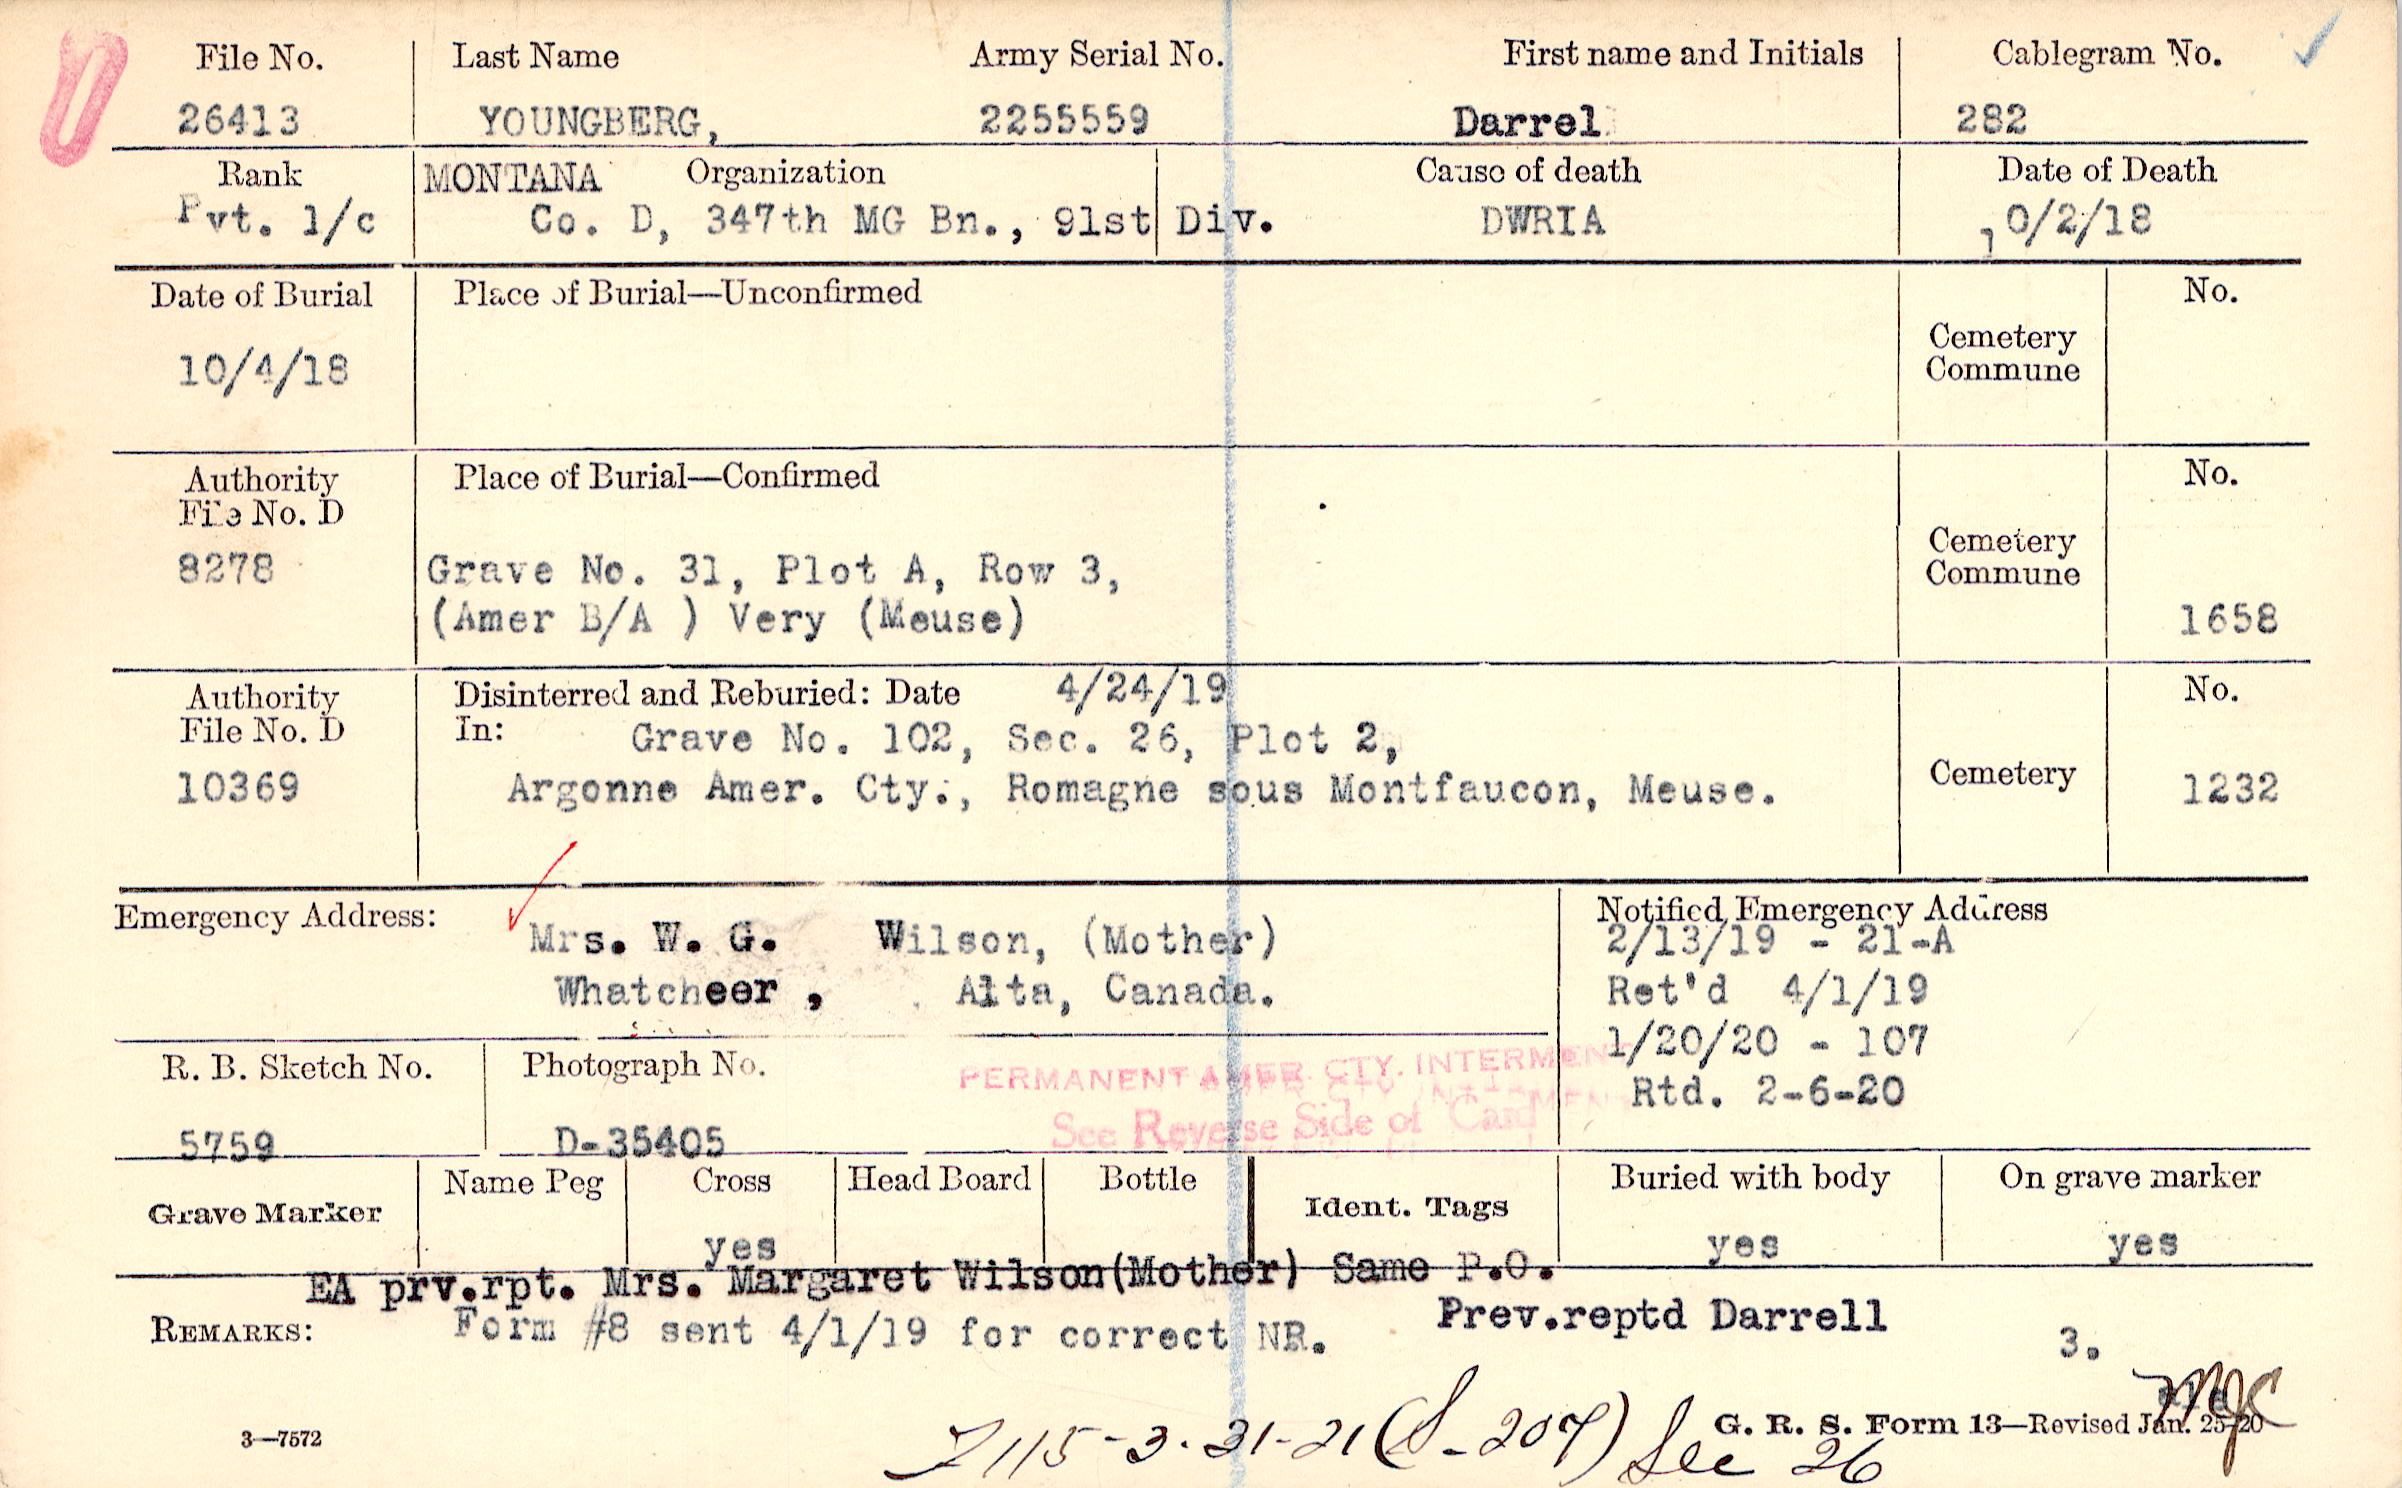 File No. Last Name Army Serial No. First name and Initials Cablegram No.
26413 YOUNGBERG, 2255559 Darrel 282
Rank MONTANA Organization Cause of death Date of Death
Pvt. 1/c Co. D, 347th MG Bn., 91st Div. DWRIA 10/2/18
Date of Burial Place of Burial—Unconfirmed No.
10/4/18 Cemetery
Commune
Authority Place of Burial—Confirmed No.
File No. D
8278 Grave No. 31, Plot A, Row 3, Cemetery
Commune
(Amer B/A ) Very (Meuse) 1658
Authority Disinterred and Reburied: Date 4/24/19 No.
File No. D In: Grave No. 102, Sec. 26, Plot 2,
10369 Argonne Amer. Cty., Romagne sous Montfaucon, Meuse. Cemetery 1232
Emergency Address: Mrs. W. G. Wilson, (Mother)
Whatcheer, Alta, Canada.
Notified Emergency Address
2/13/19 - 21-A
Ret'd 4/1/19
1/20/20 - 107
Rtd. 2-6-20
R. B. Sketch No. Photograph No.
5759 D-35405
PERMANENT AMER. CTY. INTERMENT
See Reverse Side of Card
Grave Marker Name Peg Cross Head Board Bottle Ident. Tags Buried with body On grave marker
yes yes yes
EA prv.rpt. Mrs. Margaret Wilson(Mother) Same P.O.
REMARKS: Form #8 sent 4/1/19 for correct NR. Prev.reptd Darrell
3.
3—7572 G. R. S. Form 13—Revised Jan. 25-20
115-3-31-21 (S-207) Sec 26